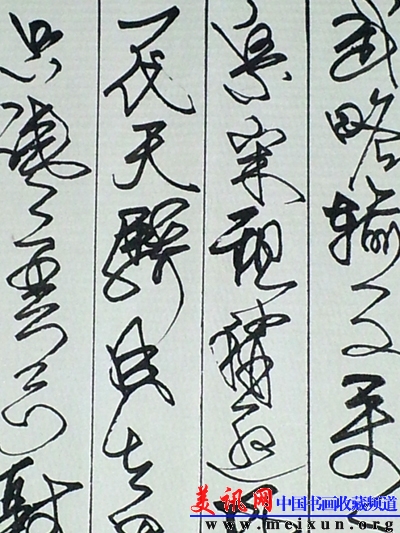 武略输文采
宗宋祖稍逊风
一代天骄成吉思
只识弯弓射
美讯网 中国书画收藏频道
www.meixun.org